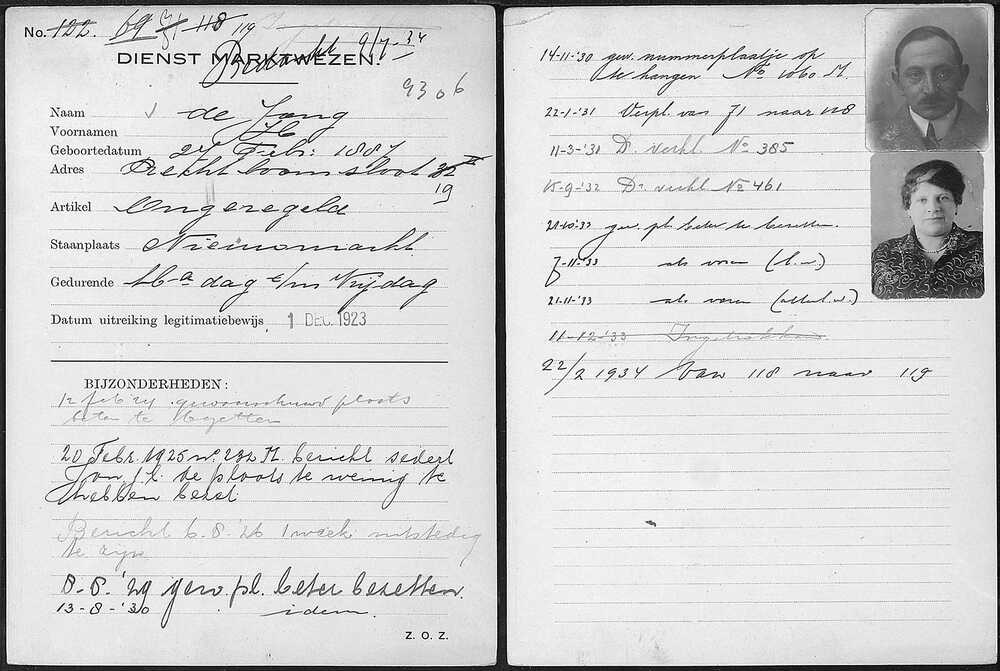 No. 122. 69 71 118 119
Bedankt 9/7-34
DIENST MARKTWEZEN.
9306
Naam de Jong
Voornamen H
Geboortedatum 27 Febr: 1887
Adres Rechtboomsloot
19
Artikel Ongeregeld
Staanplaats Nieuwmarkt
Gedurende Ma dag t/m Vrijdag
Datum uitreiking legitimatiebewijs. 1 DEC. 1923
BIJZONDERHEDEN:
12 feb 24 gewaarschuwd plaats
beter te bezetten
20 Febr. 1925 No. 232 M. bericht sedert
Jan j.l. de plaats te weinig te
hebben bezet
Bericht 6.8.'26 1 week uitstedig
te zijn
8-8-'29 gew. pl. beter bezetten.
13-8-'30 idem.
Z. O. Z.
14-11-'30 gew. nummerplaatje op
te hangen No 1060 M.
22-1-'31 Verpl. van 71 naar 118
11-3-'31 D. verkl. No 385
15-9-'32 Dr. verkl No 461
21-10-'33 gew. pl. beter te bezetten.
7-11-'33 als voren (l.w.)
21-11-'33 als voren
11-12-'33 Ingetrokken
22/2 1934 Van 118 naar 119